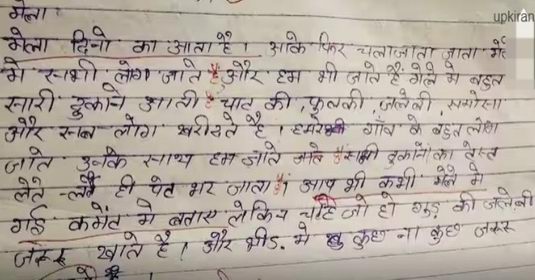 मेला
upkiran
मेला दिनो का आता है। आके फिर चलाजाता जाता में
मे सभी लोग जाते है और हम भी जाते है मेले मे बहुत
सारी दुकाने आती है चाट की, फुलकी, जलेबी, समोसा
और सब लोग खरीदते है। हमारे गाँव के बहुत लोग
जाते उनके साथ हम जाते जाते है सभी दुकानों का टेस्ट
लेते - लेते ही पेट भर जाता है। आप भी कभी मेले मे
गई कमेंट मे बताए लेकिन चाहे जो हो गुड़ की जलेबी
जरूर खाते है। और भीड़. मे कुछ ना कुछ जरूर